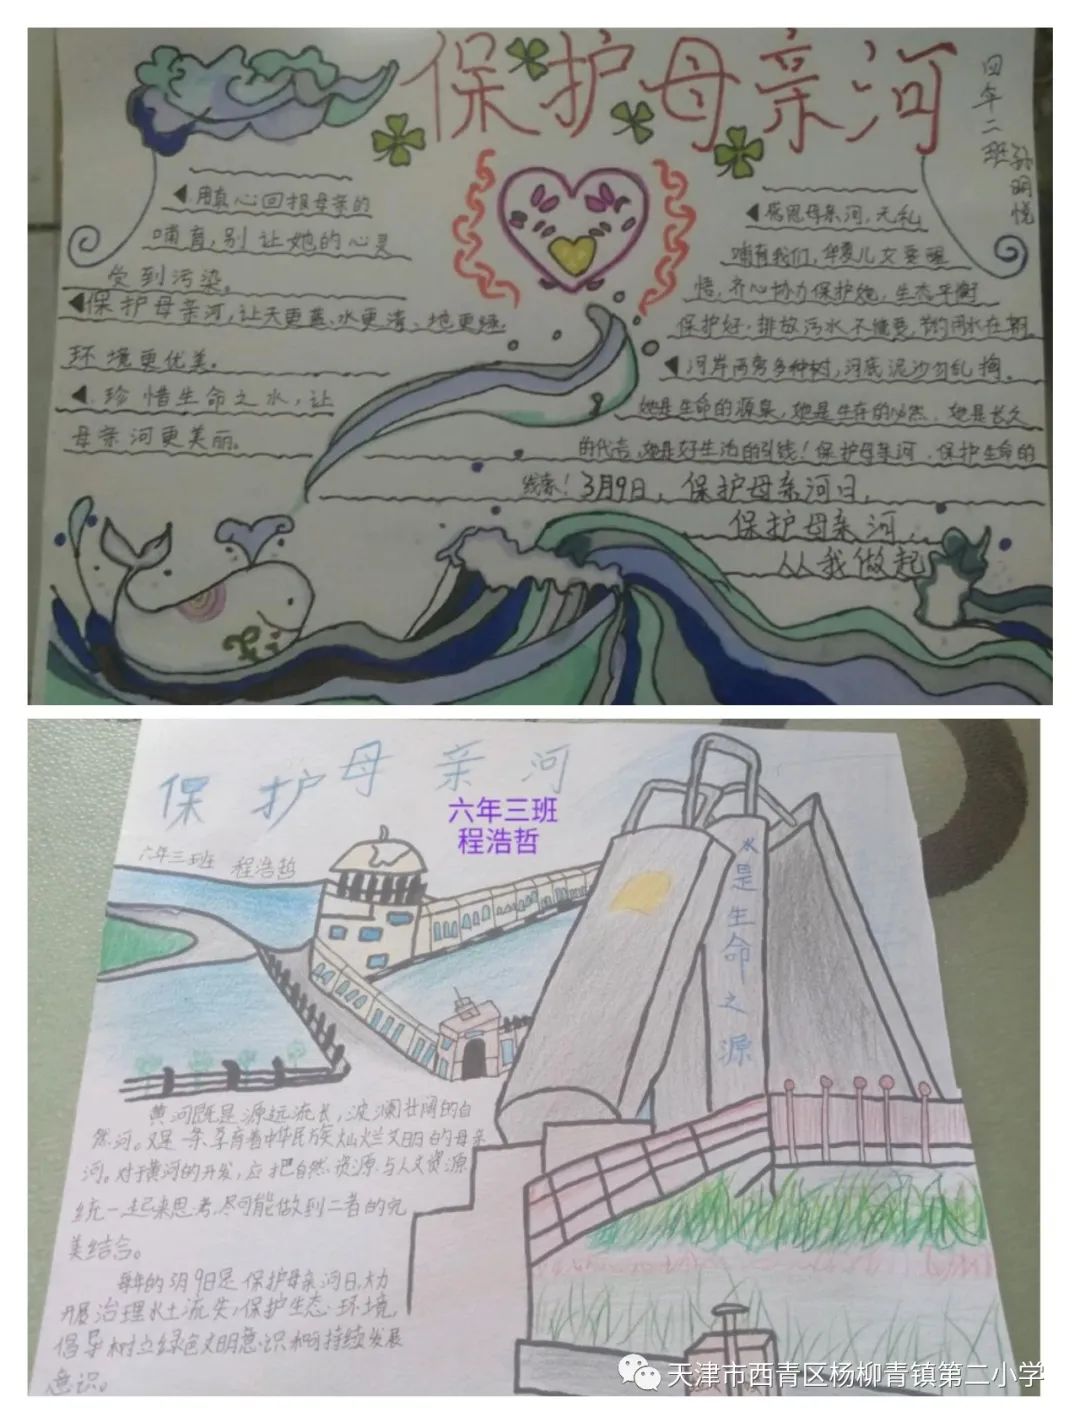 保护母亲河
四年二班
◀用真心回报母亲的
哺育,别让她的心灵
受到污染。
◀保护母亲河,让天更蓝、水更清、地更绿.
环境更优美。
◀珍惜生命之水,让
母亲河更美丽。
◀感恩母亲河,无私
哺育我们,华夏儿女要醒
悟,齐心协力保护她,生态平衡
保护好,排放污水不能要,节约用水在朝
◀河岸两旁多种树,河底泥沙勿乱掏。
她是生命的源泉,她是生存的必然,她是长久
的代言,她是好生活的引线!保护母亲河,保护生命的
线索!3月9日,保护母亲河日,
保护母亲河,
从我做起
保护母亲河
六年三班
程浩哲
六年三班 程浩哲
水是生命之源
黄河既是源远流长,波澜壮阔的自
然河。又是一条孕育着中华民族灿烂文明的母亲
河。对于黄河的开发,应把自然资源与人文资源
统一起来思考,尽可能做到二者的完
美结合。
每年的3月9日是保护母亲河日,大力
开展治理水土流失,保护生态环境,
倡导树立绿色文明意识和可持续发展
意识。
天津市西青区杨柳青镇第二小学